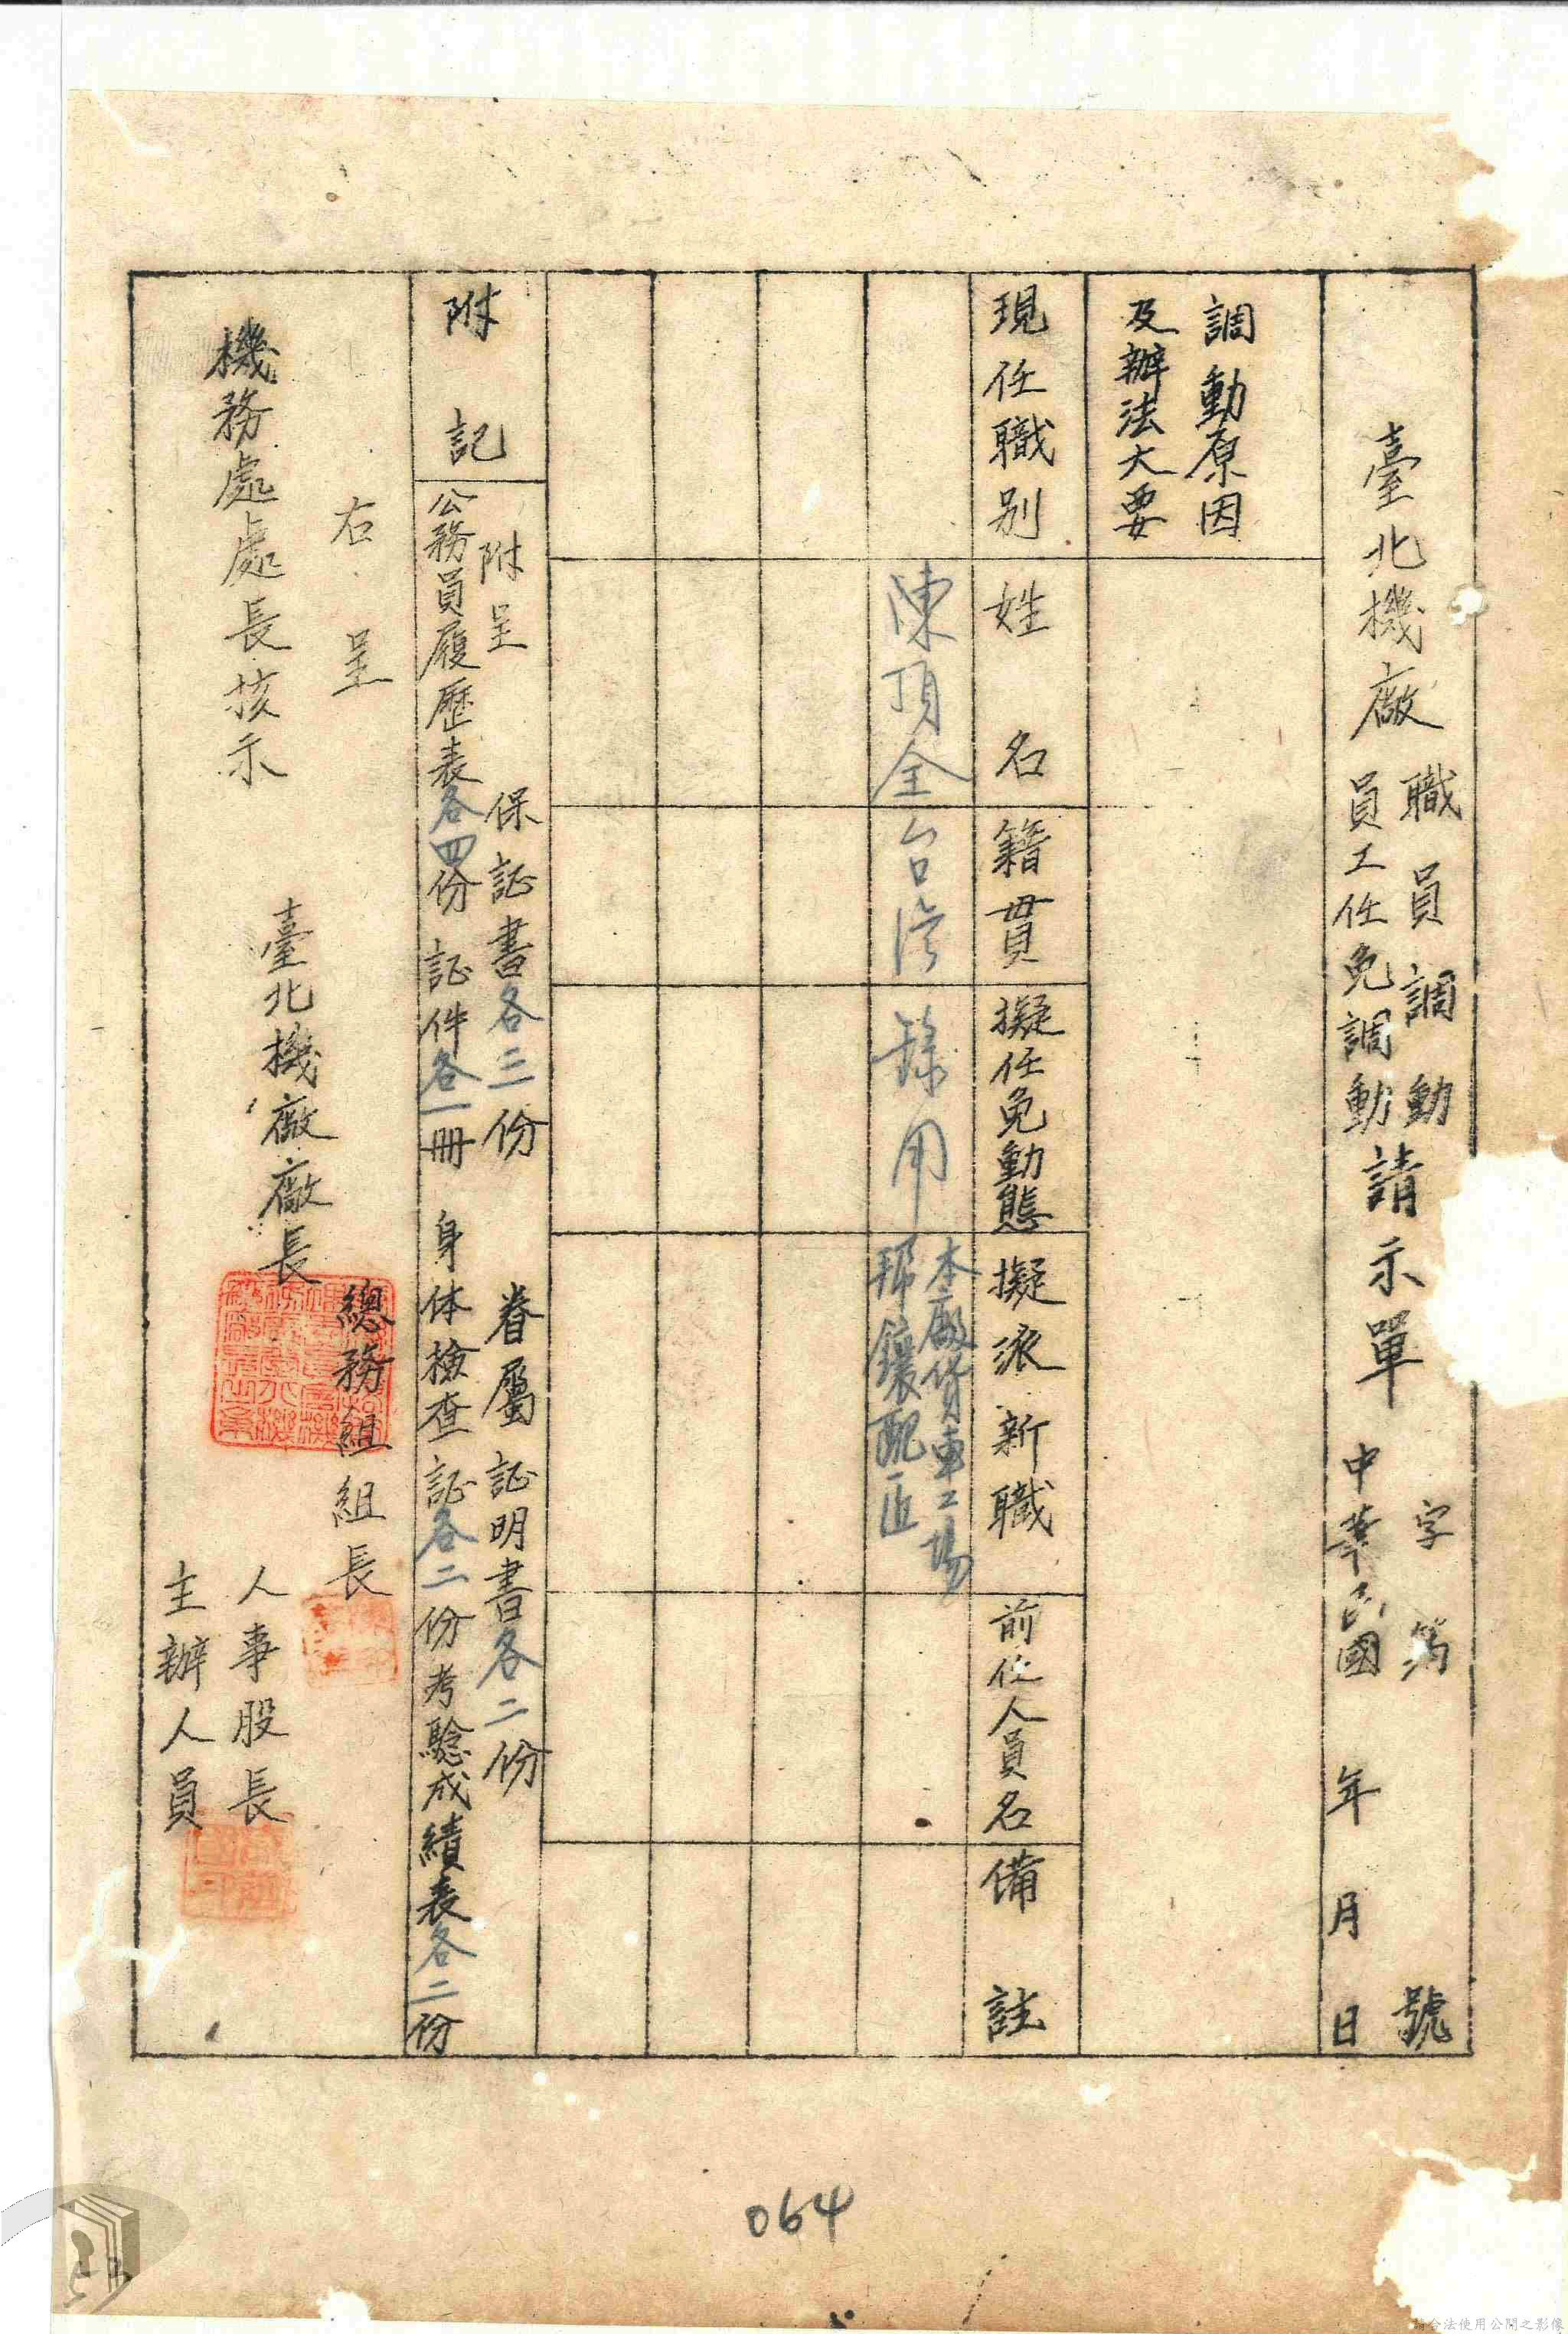 臺北機廠
職員調動
員工任免調動
請示單
字第 號
中華民國 年 月 日
調動原因
及辦法大要
現任職别
姓名
籍貫
擬任免動態
擬派新職
前任人員名
備註
陳頂全
台灣
錄用
本廠貨車工場
附記
附呈
保証書各三份
眷屬証明書各二份
公務員履歷表各四份
証件各一冊
身体檢查証各二份
考驗成績表各二份
右呈
機務處處長核示
臺北機廠廠長
總務組組長
人事股長
主辦人員
064